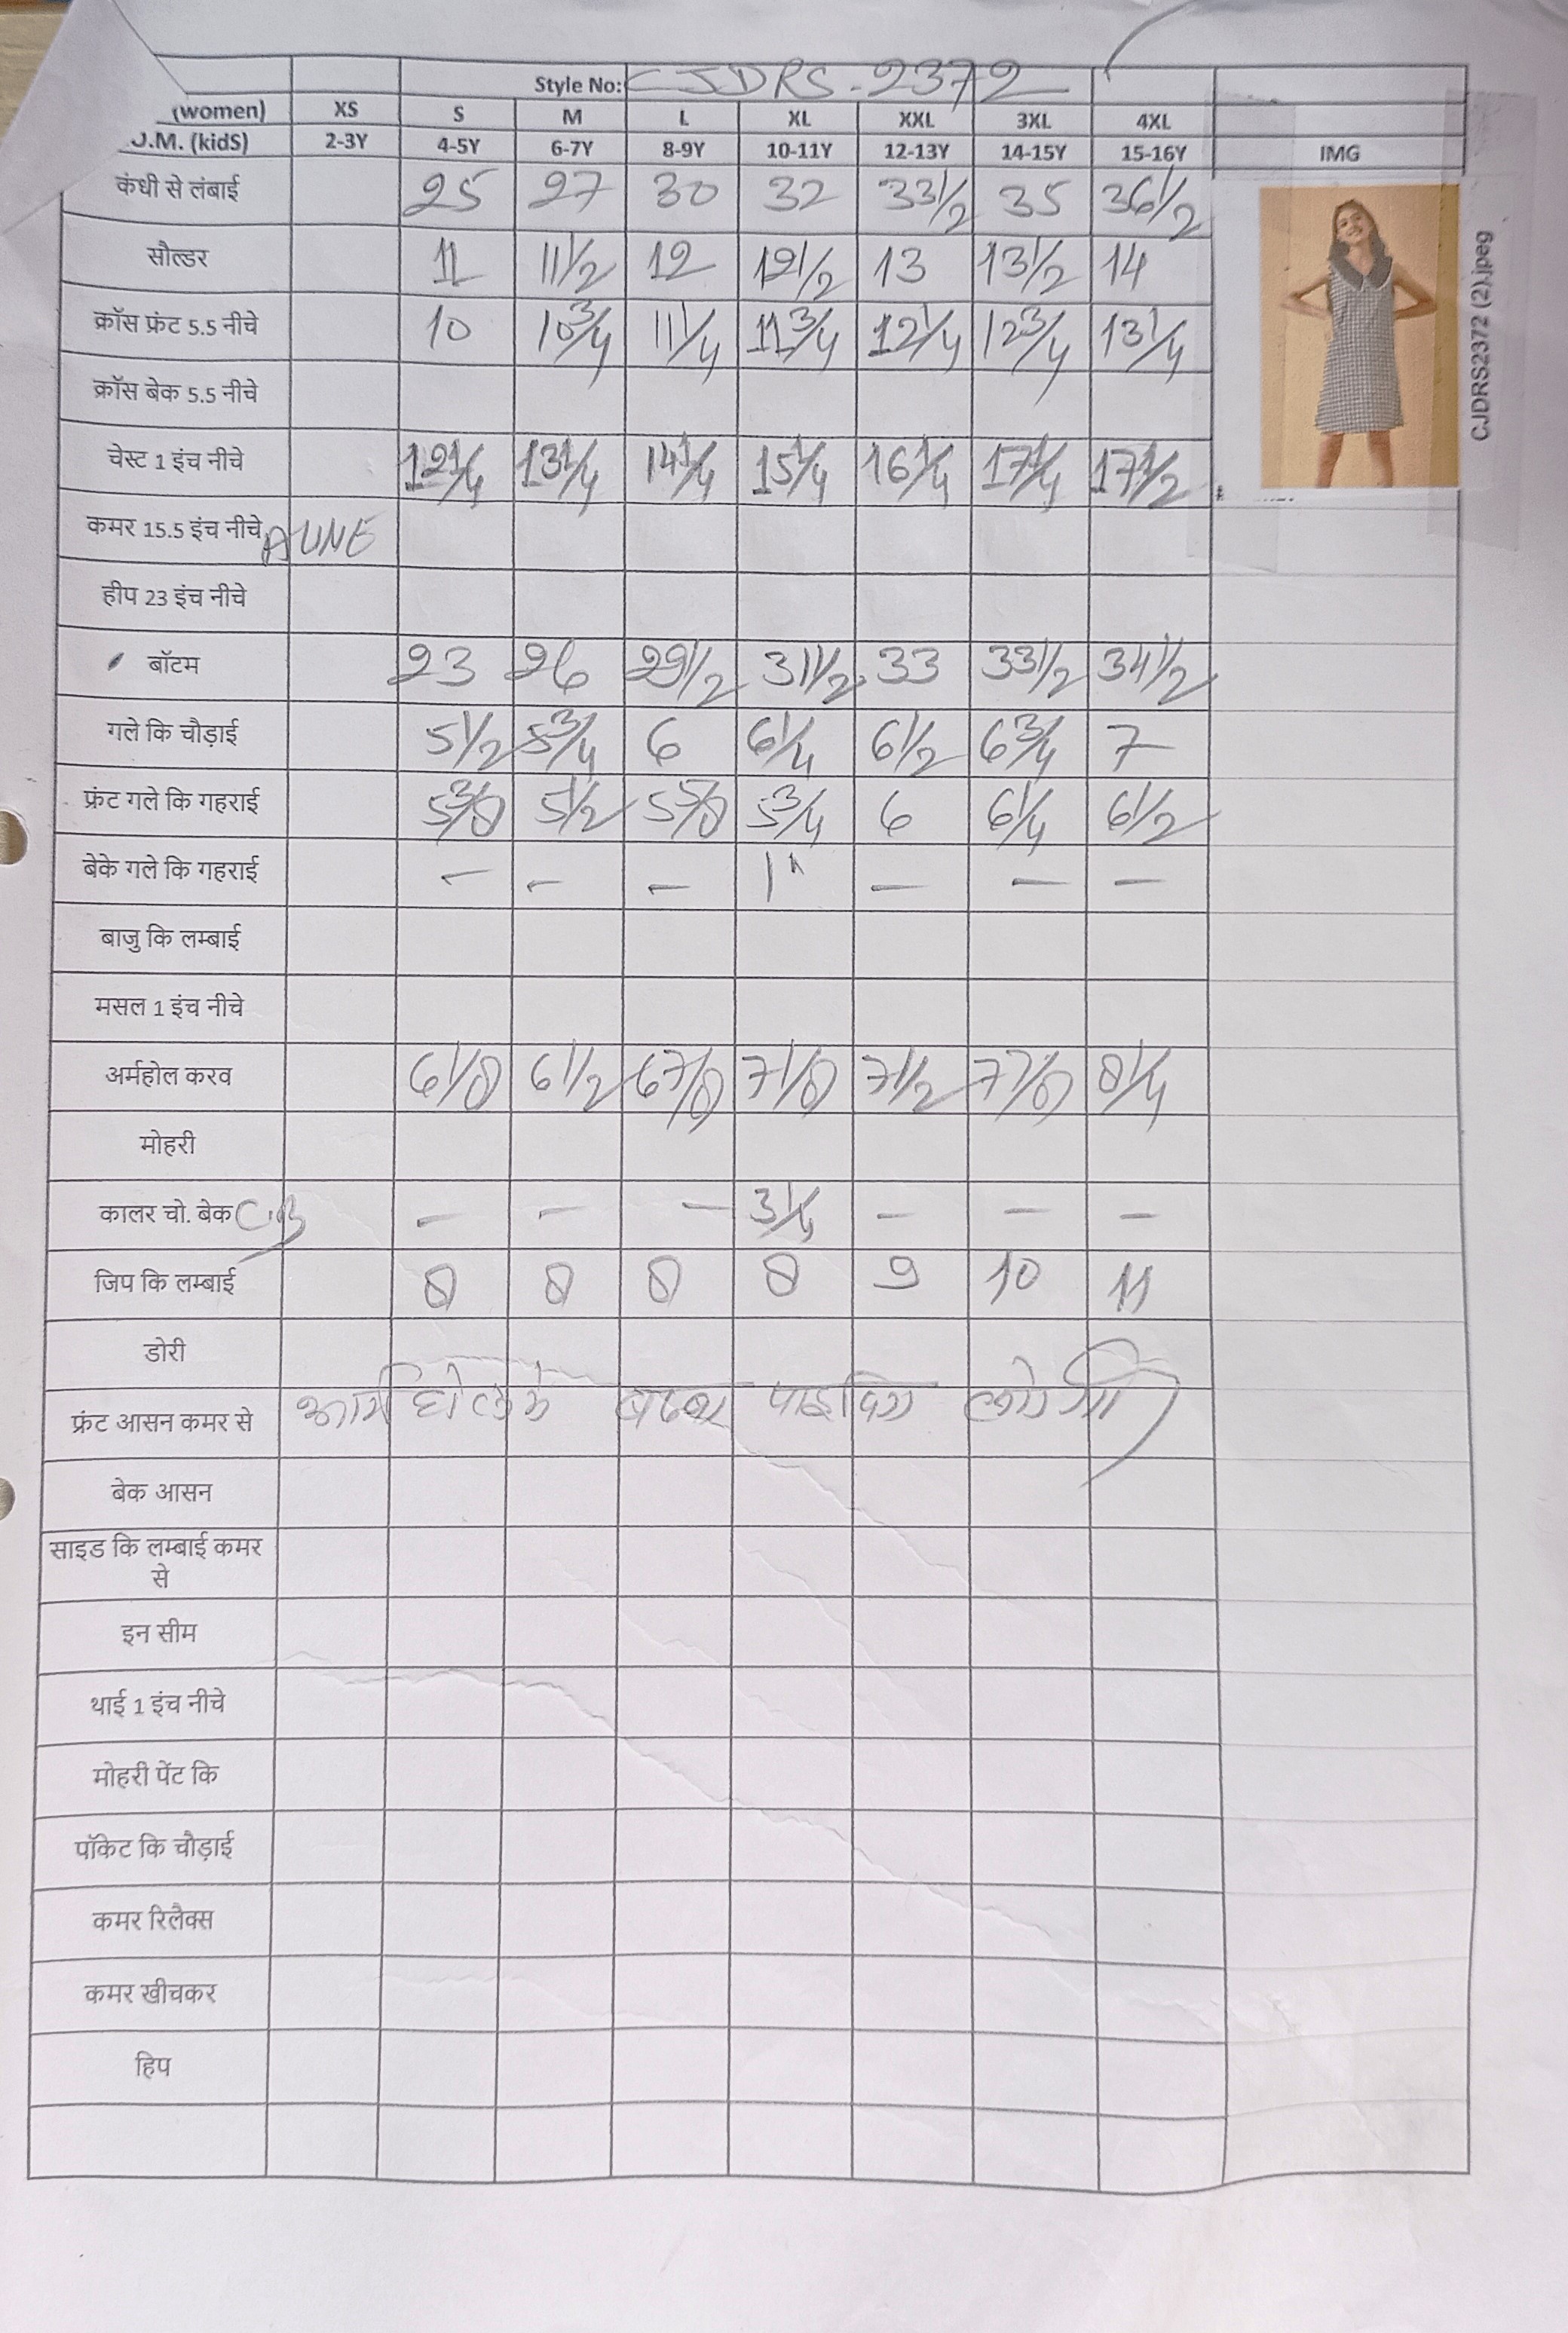 Style No: CJDRS-2372
(women) XS S M L XL XXL 3XL 4XL
O.M. (kidS) 2-3Y 4-5Y 6-7Y 8-9Y 10-11Y 12-13Y 14-15Y 15-16Y IMG
कंधी से लंबाई 25 27 30 32 33 1/2 35 36 1/2
सौल्डर 11 11 1/2 12 12 1/2 13 13 1/2 14
क्रॉस फ्रंट 5.5 नीचे 10 10 3/4 11 1/4 11 3/4 12 1/4 12 3/4 13 1/4
क्रॉस बेक 5.5 नीचे
चेस्ट 1 इंच नीचे 12 1/4 13 1/4 14 1/4 15 1/4 16 1/4 17 1/4 17 1/2
कमर 15.5 इंच नीचे A LINE
हीप 23 इंच नीचे
बॉटम 23 26 29 1/2 31 1/2 33 33 1/2 34 1/2
गले कि चौड़ाई 5 1/2 5 3/4 6 6 1/4 6 1/2 6 3/4 7
फ्रंट गले कि गहराई 5 3/8 5 1/2 5 5/8 5 3/4 6 6 1/4 6 1/2
बेके गले कि गहराई – – – 1" – – –
बाजु कि लम्बाई
मसल 1 इंच नीचे
अर्महोल करव 6 1/8 6 1/2 6 7/8 7 1/8 7 1/2 7 7/8 8 1/4
मोहरी
कालर चो. बेक C.B – – – 3 1/4 – – –
जिप कि लम्बाई 8 8 8 8 9 10 11
डोरी
फ्रंट आसन कमर से पाइपिंग लगेगी
बेक आसन
साइड कि लम्बाई कमर
से
इन सीम
थाई 1 इंच नीचे
मोहरी पेंट कि
पॉकेट कि चौड़ाई
कमर रिलैक्स
कमर खीचकर
हिप
CJDRS2372 (2).jpeg